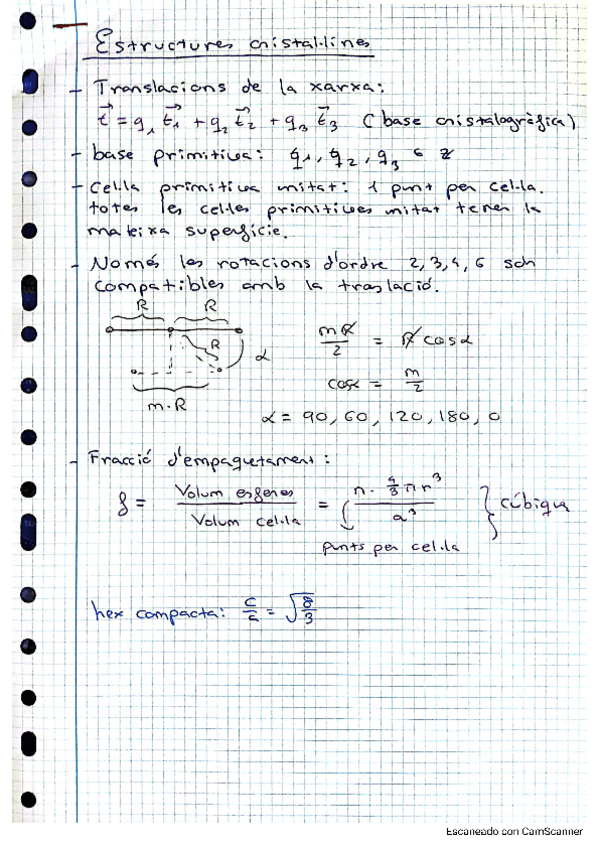 Estructures cristal·lines
- Translacions de la xarxa:
t⃗ = q₁ t⃗₁ + q₂ t⃗₂ + q₃ t⃗₃ (base cristalogràfica)
- base primitiva: q₁, q₂, q₃ ∈ Z
- Cel·la primitiva mitat: 1 punt per cel·la.
totes les cel·les primitives mitat tenen la
mateixa superfície.
- Només les rotacions d'ordre 2, 3, 4, 6 són
compatibles amb la traslació.
R R
R α
m·R
mR/2 = R cosα
cosα = m/2
α = 90, 60, 120, 180, 0
- Fracció d'empaquetament:
f = Volum esferes / Volum cel·la = n · 4/3 π r³ / a³ } cúbiques
punts per cel·la
hex compacta: c/a = √8/3
Escaneado con CamScanner